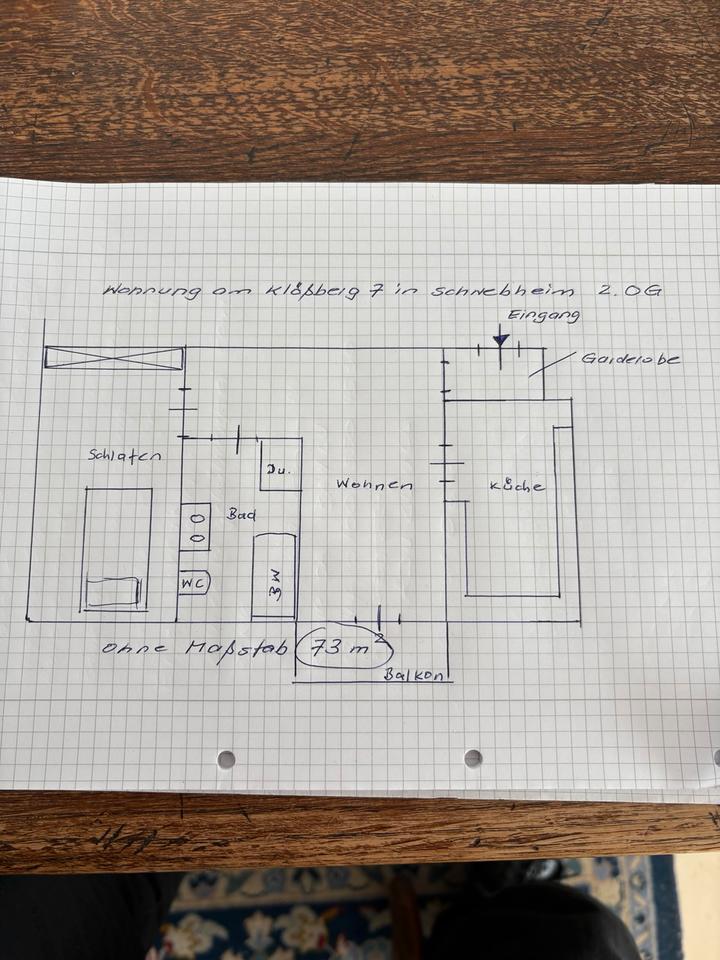 Wohnung am Klößberg 7 in Schwebheim 2.OG
Eingang
Garderobe
Schlafen
Du.
Wohnen
Küche
Bad
WC
BW
Ohne Maßstab 73 m²
Balkon